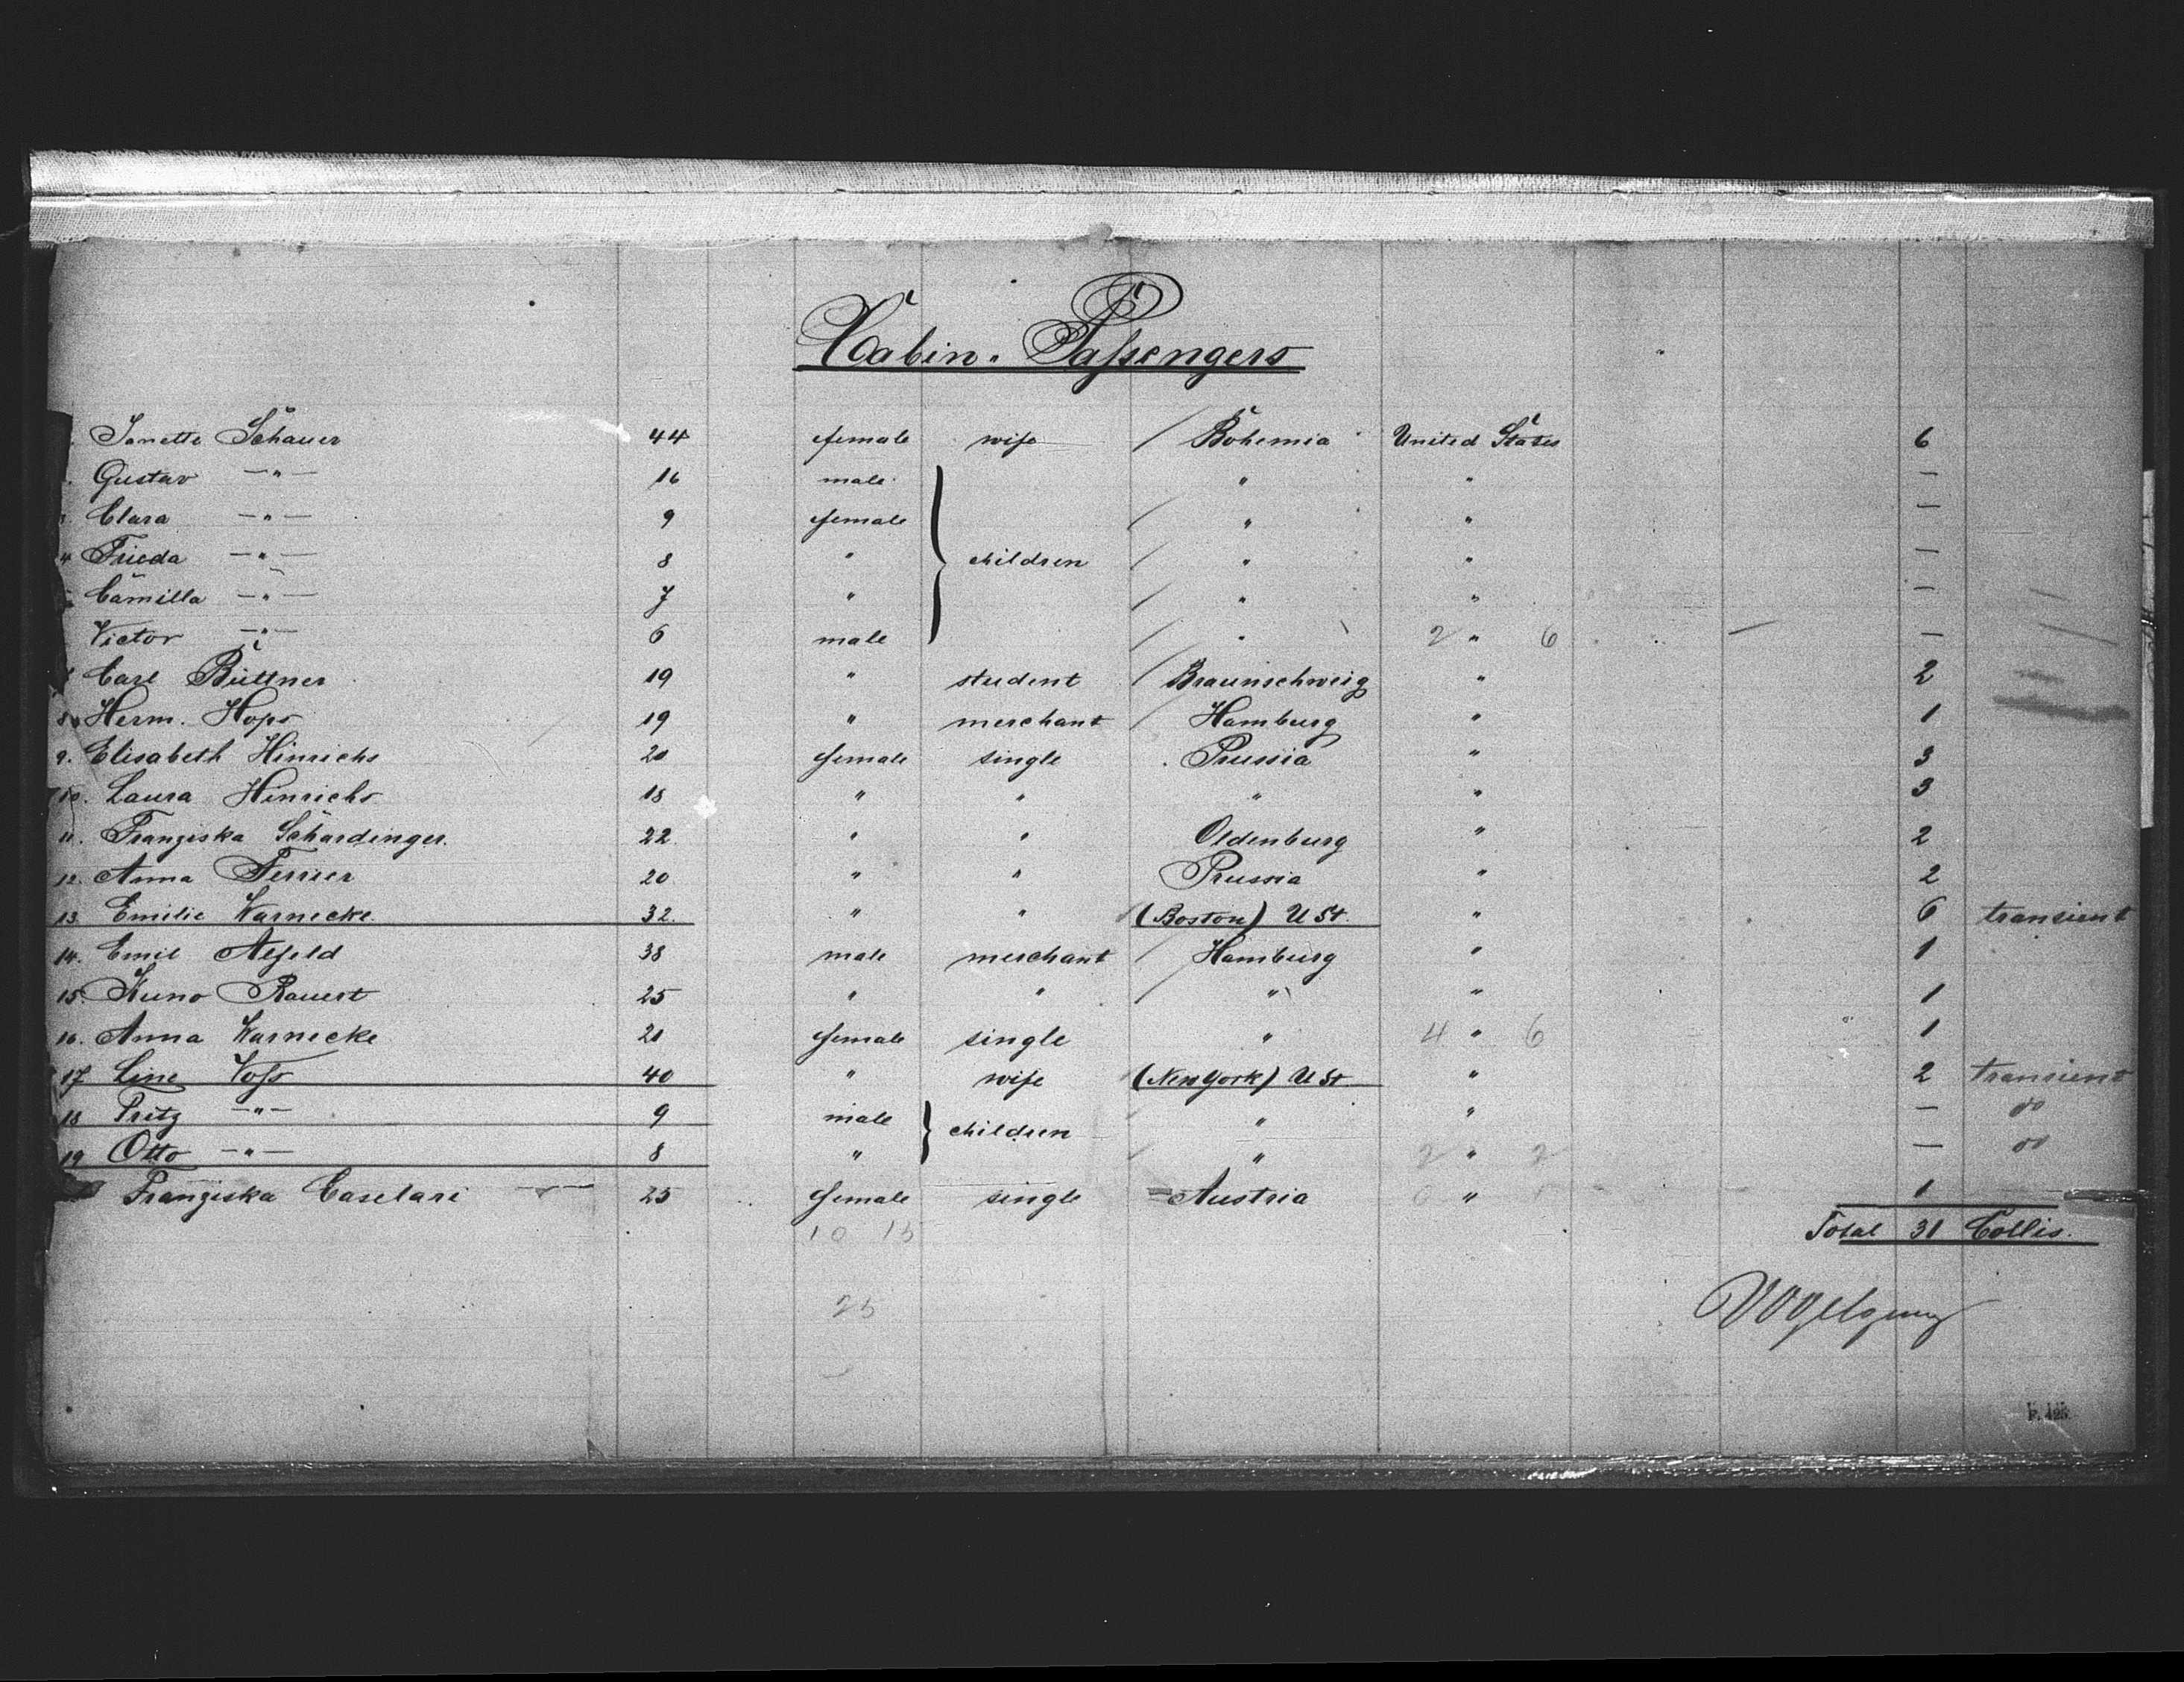 Cabin. Passengers
Janette Schauer 44 female wife / Bohemia United States 6
Gustav —"— 16 male " " —
3. Clara —"— 9 female / " " —
4 Frieda —"— 8 " children / " " —
Camilla —"— 7 " / " " —
Victor —"— 6 male / " 2 " 6 — —
Carl Büttner 19 " student / Braunschweig " 2
8. Herm. Hops 19 " merchant / Hamburg " 1
9. Elisabeth Hinrichs 20 female single Prussia " 3
10. Laura Hinrichs 18 " " " " 3
11. Franziska Schardinger. 22 " " Oldenburg " 2
12. Anna Ferrier 20 " " Prussia " 2
13. Emilie Warnecke. 32. " " (Boston) U St. " 6 transient
14. Emil Alfeld 38 male merchant / Hamburg " 1
15. Kuno Rauert 25 " " / " " 1
16. Anna Warnecke 21 female single " 4 " 6 1
17 Line Voss 40 " wife (New York) U St. " 2 transient
18 Fritz —"— 9 male children " " — do
19 Otto —"— 8 " " 2 " 2 — do
Franziska Caselari 25 female single Austria " 1
10 15
Total 31 Collis.
25